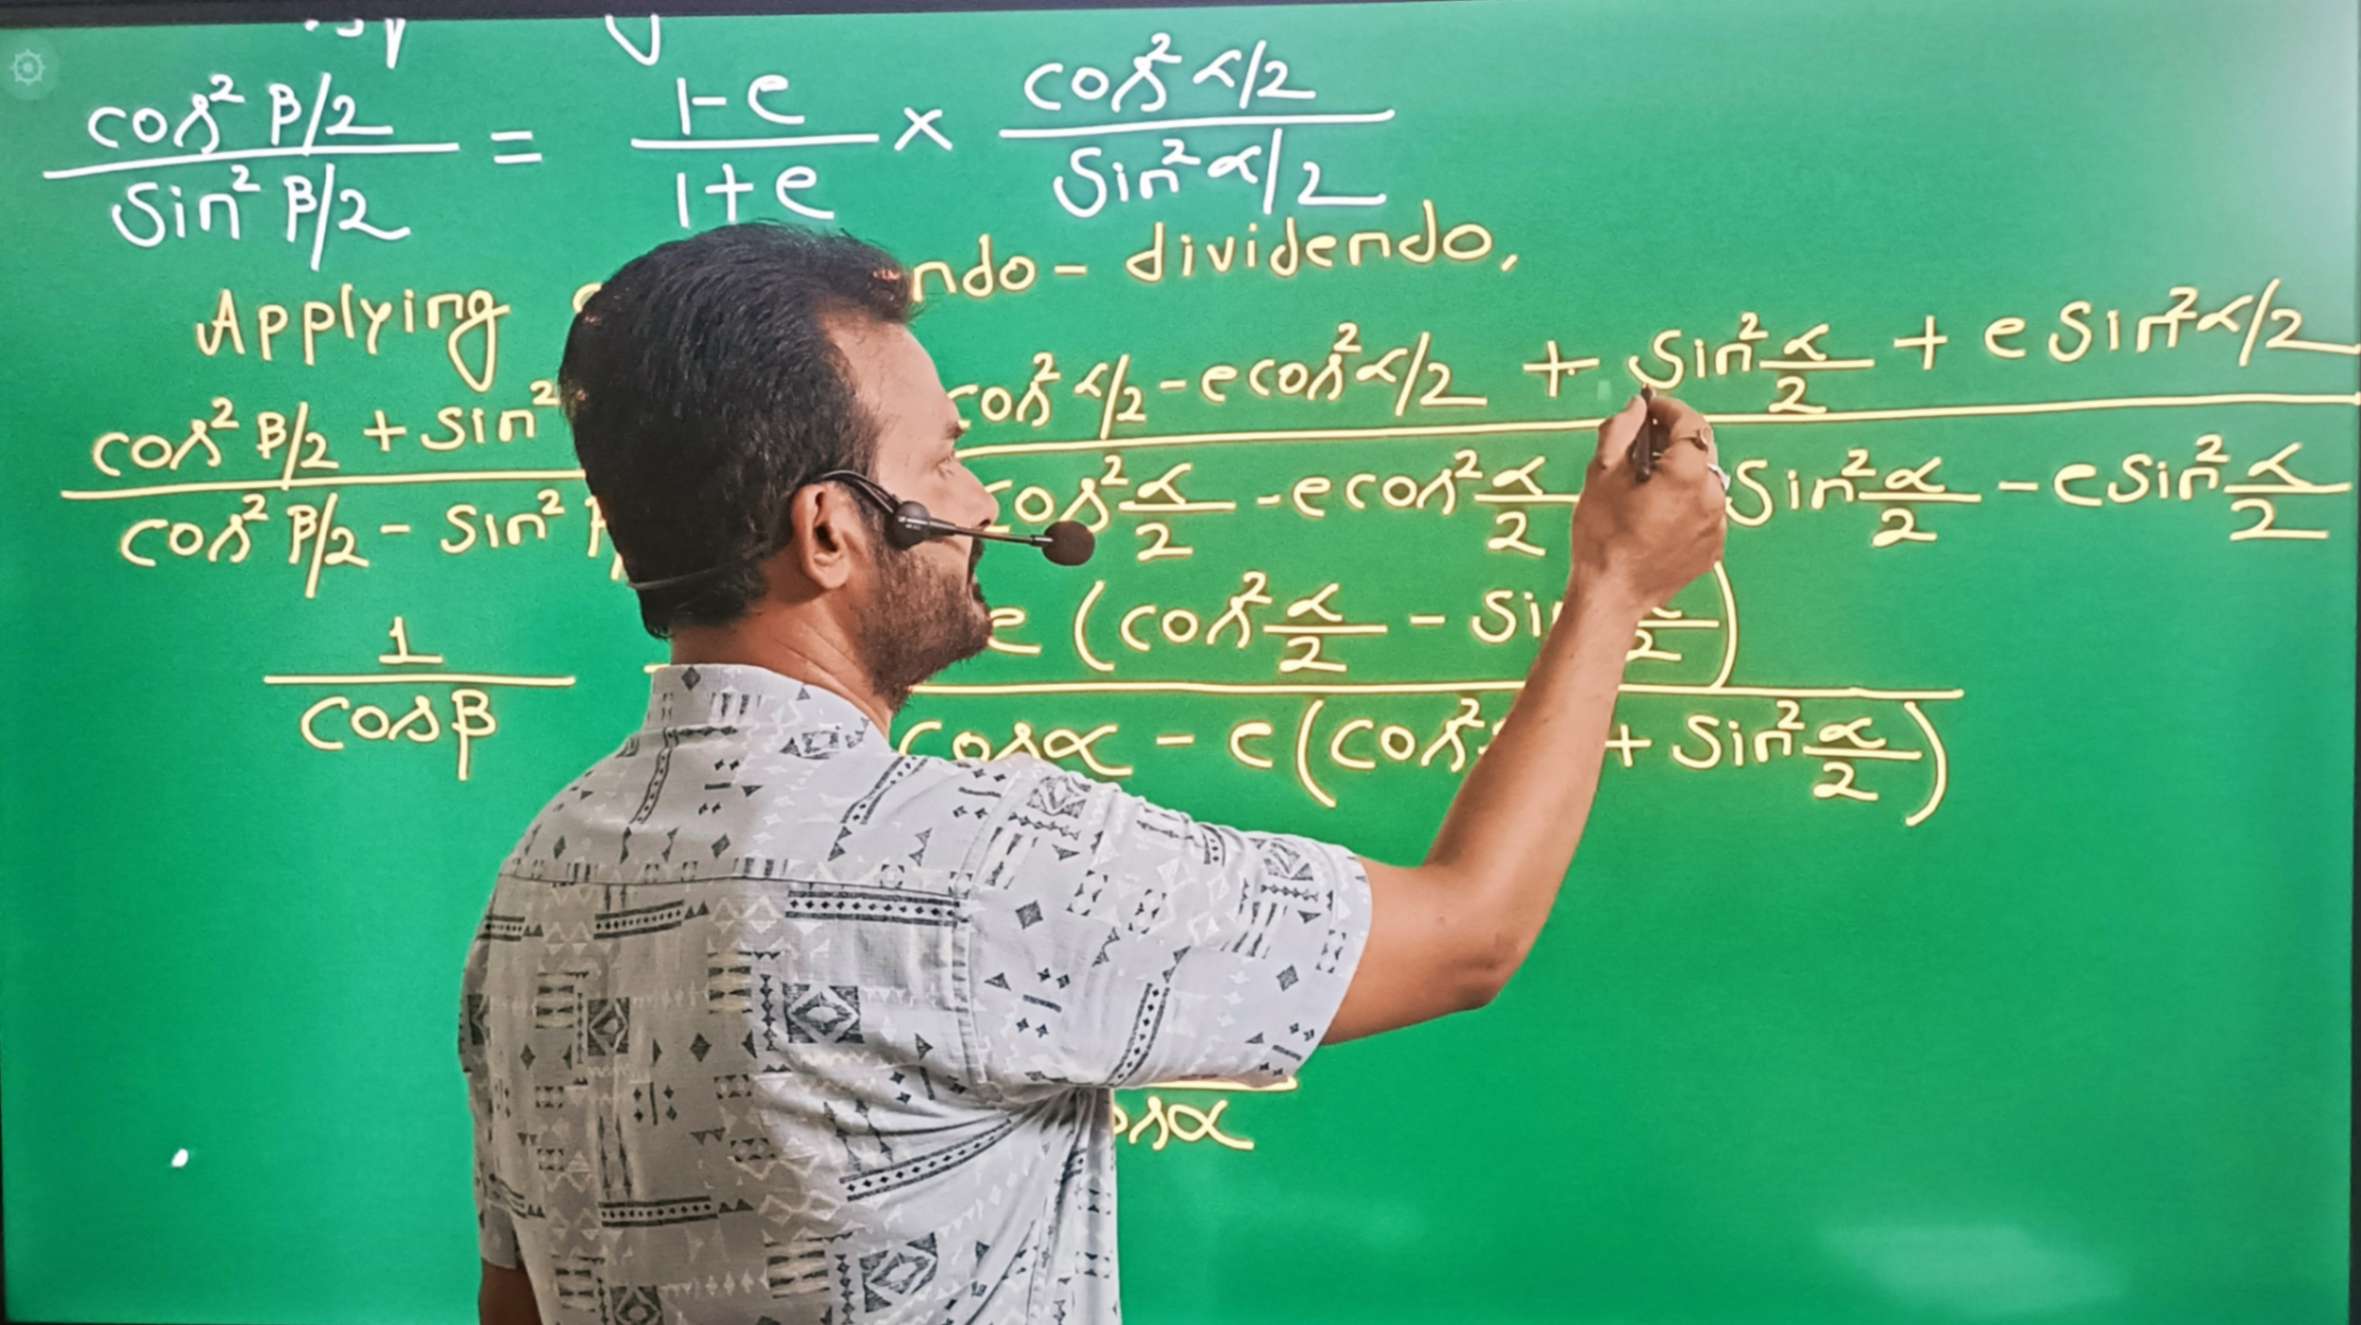 cos² β/2 / sin² β/2 = 1-e / 1+e × cos² α/2 / sin² α/2
Applying ndo - dividendo,
cos² β/2 + sin² / cos² β/2 - sin² cos² α/2 - e cos² α/2 + sin² α/2 + e sin² α/2 / cos² α/2 - e cos² α/2 sin² α/2 - e sin² α/2
1 / cosβ e (cos² α/2 - sin α/2) / cosα - e (cos² + sin² α/2)
cosα